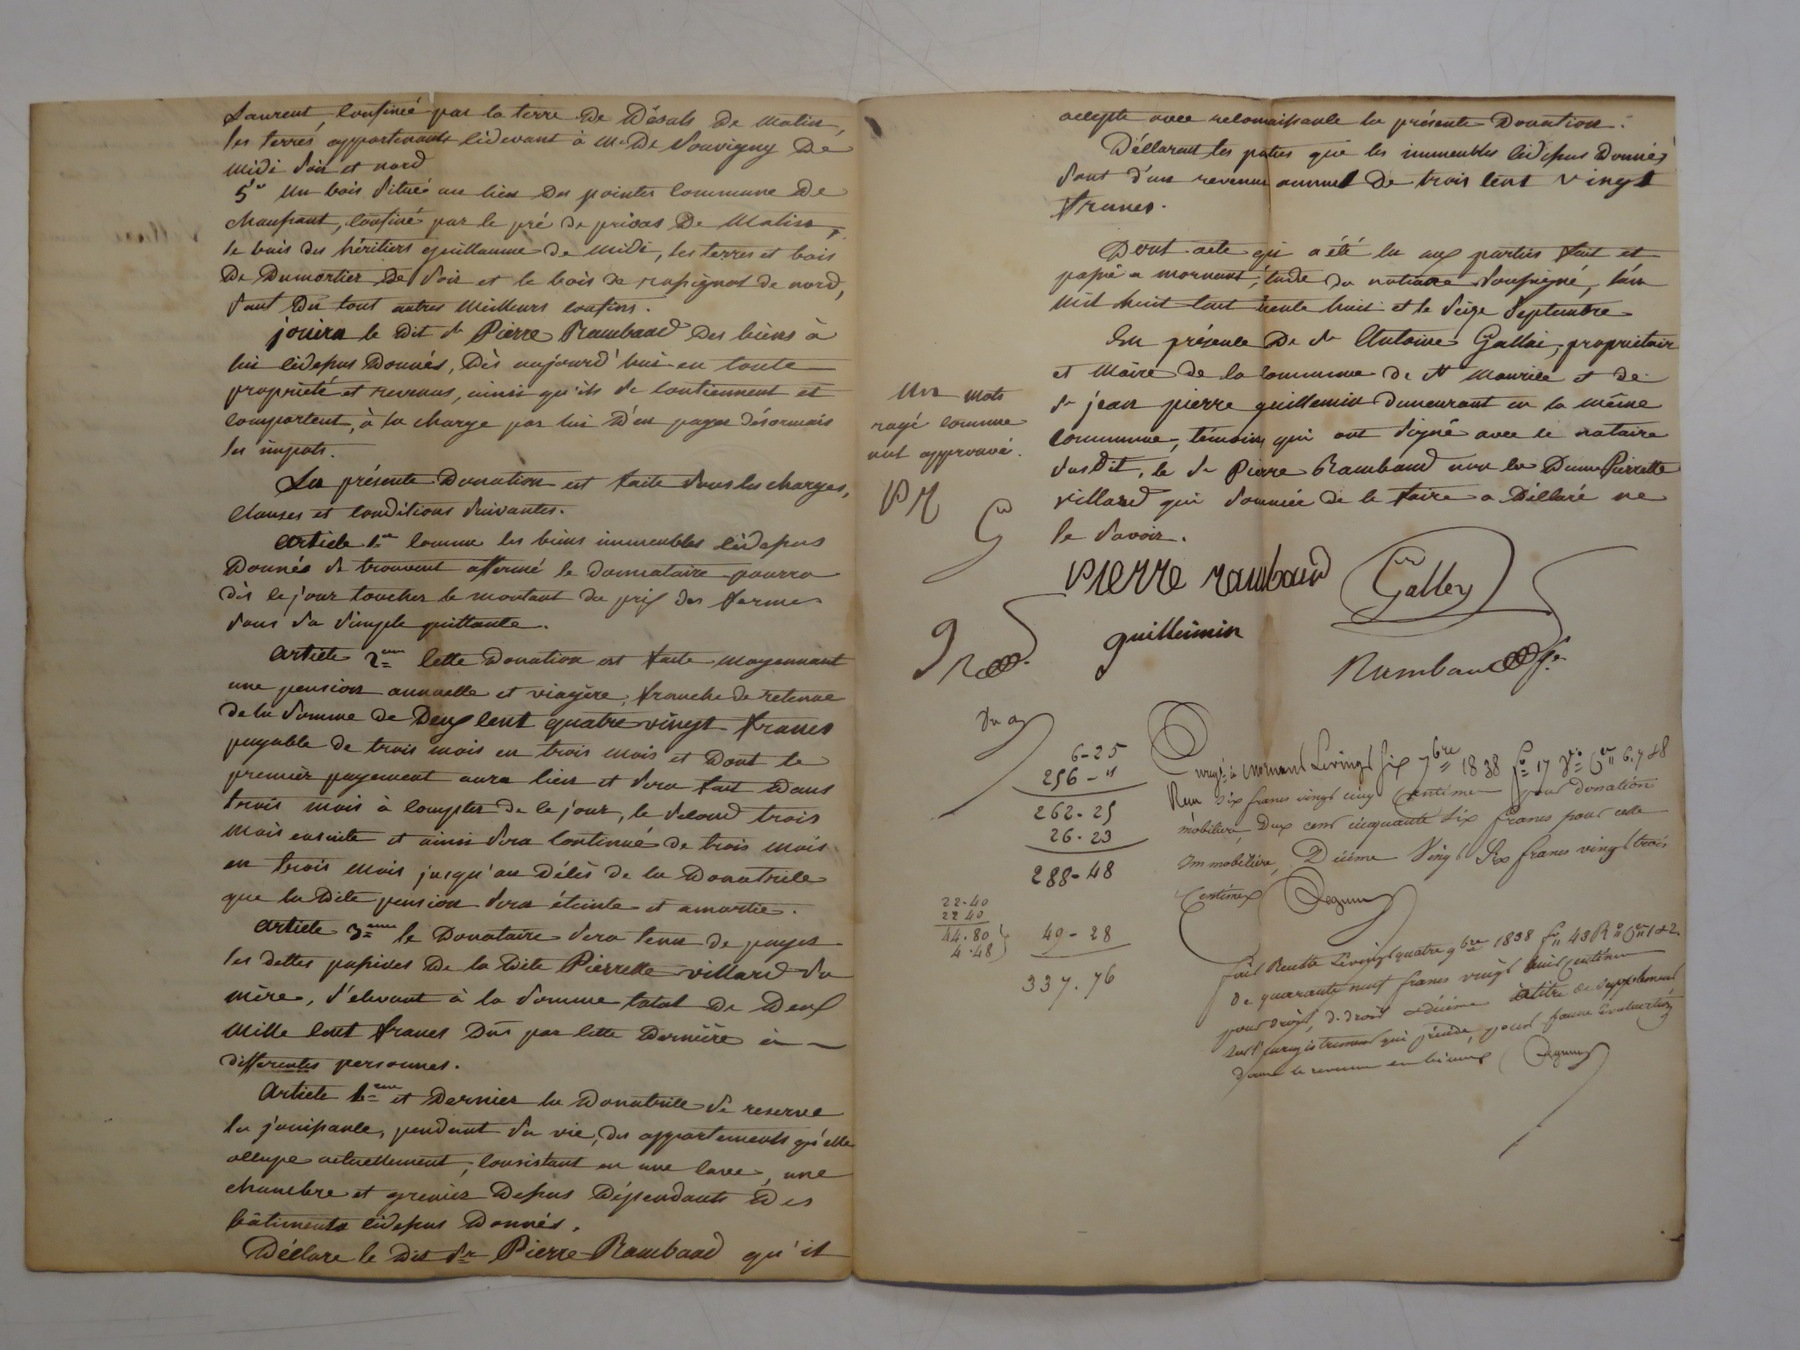 Laurent, confiné par la terre De Désals De Matin,
les terres appartenants cidevant à Mr De Souvigny De
Midi soir et nord
5° Un bois situé au lieu Des pointes Commune De
Chaussant, confiné par le pré de privas De Matin,
le bois des héritiers guillaume de Midi, les terres et bois
De Dumortier De soir et le bois de rossignol de nord,
sauf Du tout autres Meilleurs confins.
jouira le Dit Sr Pierre Rambaud Des biens à
lui cidessus Donnés, Dès aujourd'hui en toute
propriété et revenus, ainsi qu'ils se contiennent et
comportent, à la charge par lui D'en payer désormais
les impots.
La présente Donation est faite sous les charges,
Clauses et Conditions suivantes.
Article 1er Comme les biens immeubles cidessus
Donnés se trouvent affermé le donnataire pourra
dès ce jour toucher le montant du prix des fermes
sous sa simple quittance.
Article 2eme Cette Donation est faite moyennant
une pension annuelle et viagère, franche de retenue
de la somme de Deux Cent quatre vingt francs
payable de trois mois en trois mois et Dont le
premier payement aura lieu et sera fait Dans
trois mois à compter de ce jour, le second trois
Mois ensuite et ainsi sera continué de trois mois
en trois mois jusqu'au Décès de la Donatrice
que la Dite pension sera éteinte et amortie.
Article 3eme le Donataire sera tenu de payer
les dettes passives De la Dite Pierrette Villard sa
mère, s'élevant à la somme total De Deux
Mille Cent francs Dus par cette Dernière à
differentes personnes.
Article 4eme et Dernier la Donatrice se reserve
la jouissance, pendant sa vie, des appartements qu'elle
occupe actuellement, consistant en une cave, une
chambre et grenier Dessus Dépendants Des
bâtiments cidessus Donnés.
Déclare le Dit Sr Pierre Rambaud qu'il
accepte avec reconnaissance la présente Donation.
Déclarent les parties que les immeubles cidessus Donnés
sont d'un revenu annuel De trois cent vingt
francs.
Dont acte qui a été lu aux parties fait et
passé a mornant, étude du notaire soussigné, l'an
Mil huit cent trente huit et le seize septembre
En présence De Sr Antoine Gallai, propriétaire
et Maire de la Commune de St Maurice et de
Sr jean pierre guillemin demeurant en la même
Commune, témoins qui ont signé avec le notaire
susdit, le Sr Pierre Rambaud non la Dame Pierrette
Villard qui sommée de le faire a Déclaré ne
le savoir.
Un mots
rayé comme
nul approuvé.
PR
G
Pierre rambaud
Galley
guillemin
Rambaud
6-25
256-"
262-25
26-23
288-48
22-40
22 40
44.80
4.48
49-28
337.76
Enregé à Mornant Le vingt six 7bre 1838 fo 17 Vo Cer 6, 7 & 8
Reçu six francs vingt cinq Centimes pour donation
mobilière, Deux cent cinquante six francs pour celle
Immobilière, Décime Vingt Six francs vingt trois
Centimes
Fait Recette Le vingt quatre 9bre 1838 fo 43 Ro Cer 1 & 2
De quarante neuf francs vingt huit Centimes
pour droit, d. droit & décime à titre de supplément
sur l'enregistrement qui précède, pour fausse évaluation
dans le revenu